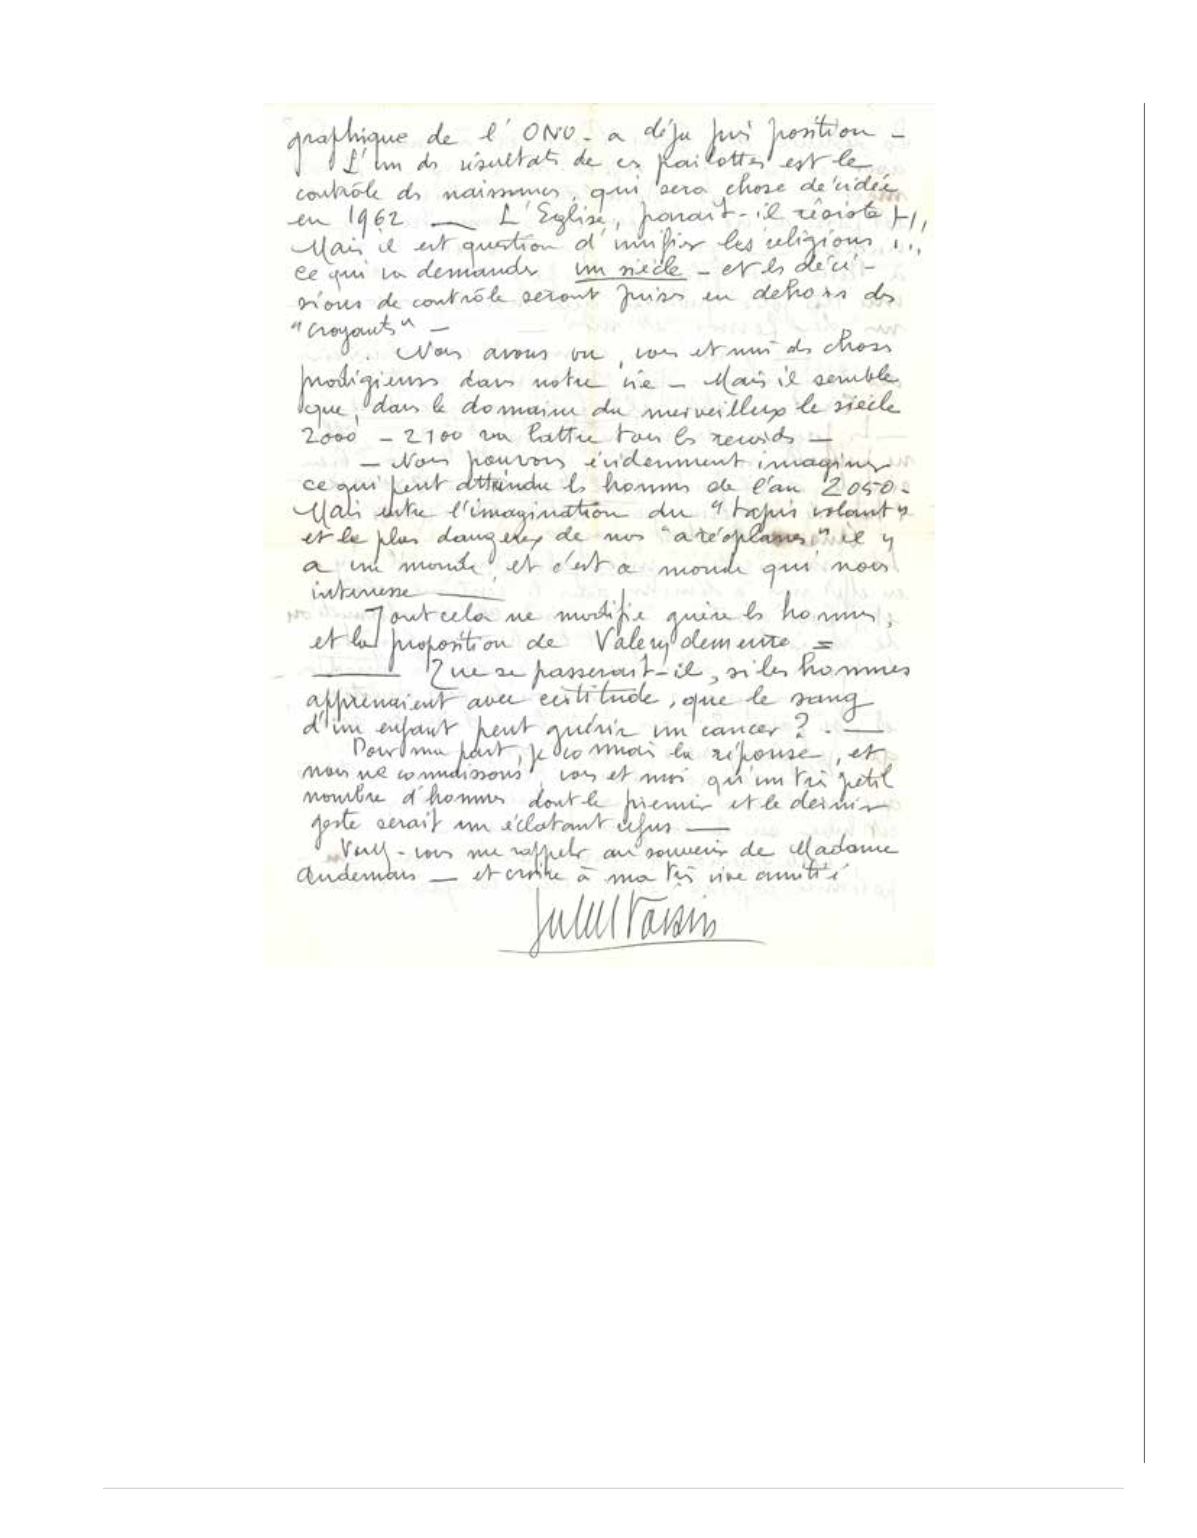 graphique de l'ONU - a déjà pris position -
L'un ds résultats de ces paillottes est le
contrôle ds naissances, qui sera chose décidée
en 1962 — L'Eglise, parait-il résiste
Mais il est question d'unifier les religions ...
ce qui va demander un siècle - et ls déci-
sions de contrôle seront prises en dehors des
"croyants" -
Nous avons vu, vous et moi ds choses
prodigieuses dans notre vie - Mais il semble
que, dans le domaine du merveilleux le siècle
2000 - 2100 va battre tous ls records -
- Nous pouvons évidemment imaginer
ce qui peut attendre ls hommes de l'an 2050.
Mais entre l'imagination du "tapis volant"
et le plus dangereux de nos "aréoplanes" il y
a un monde, et c'est ce monde qui nous
interesse —
Tout cela ne modifie guère ls hommes,
et la proposition de Valery demeure =
— Que se passerait-il, si les hommes
apprenaient avec certitude, que le sang
d'un enfant peut guérir un cancer ? . —
Pour ma part, je connais la réponse, et
nous ne connaissons, vous et moi qu'un très petit
nombre d'hommes dont le premier et le dernier
geste serait un éclatant refus —
Veuillez-vous me rappeler au souvenir de Madame
Andemars — et croire à ma très vive amitié
Voisin